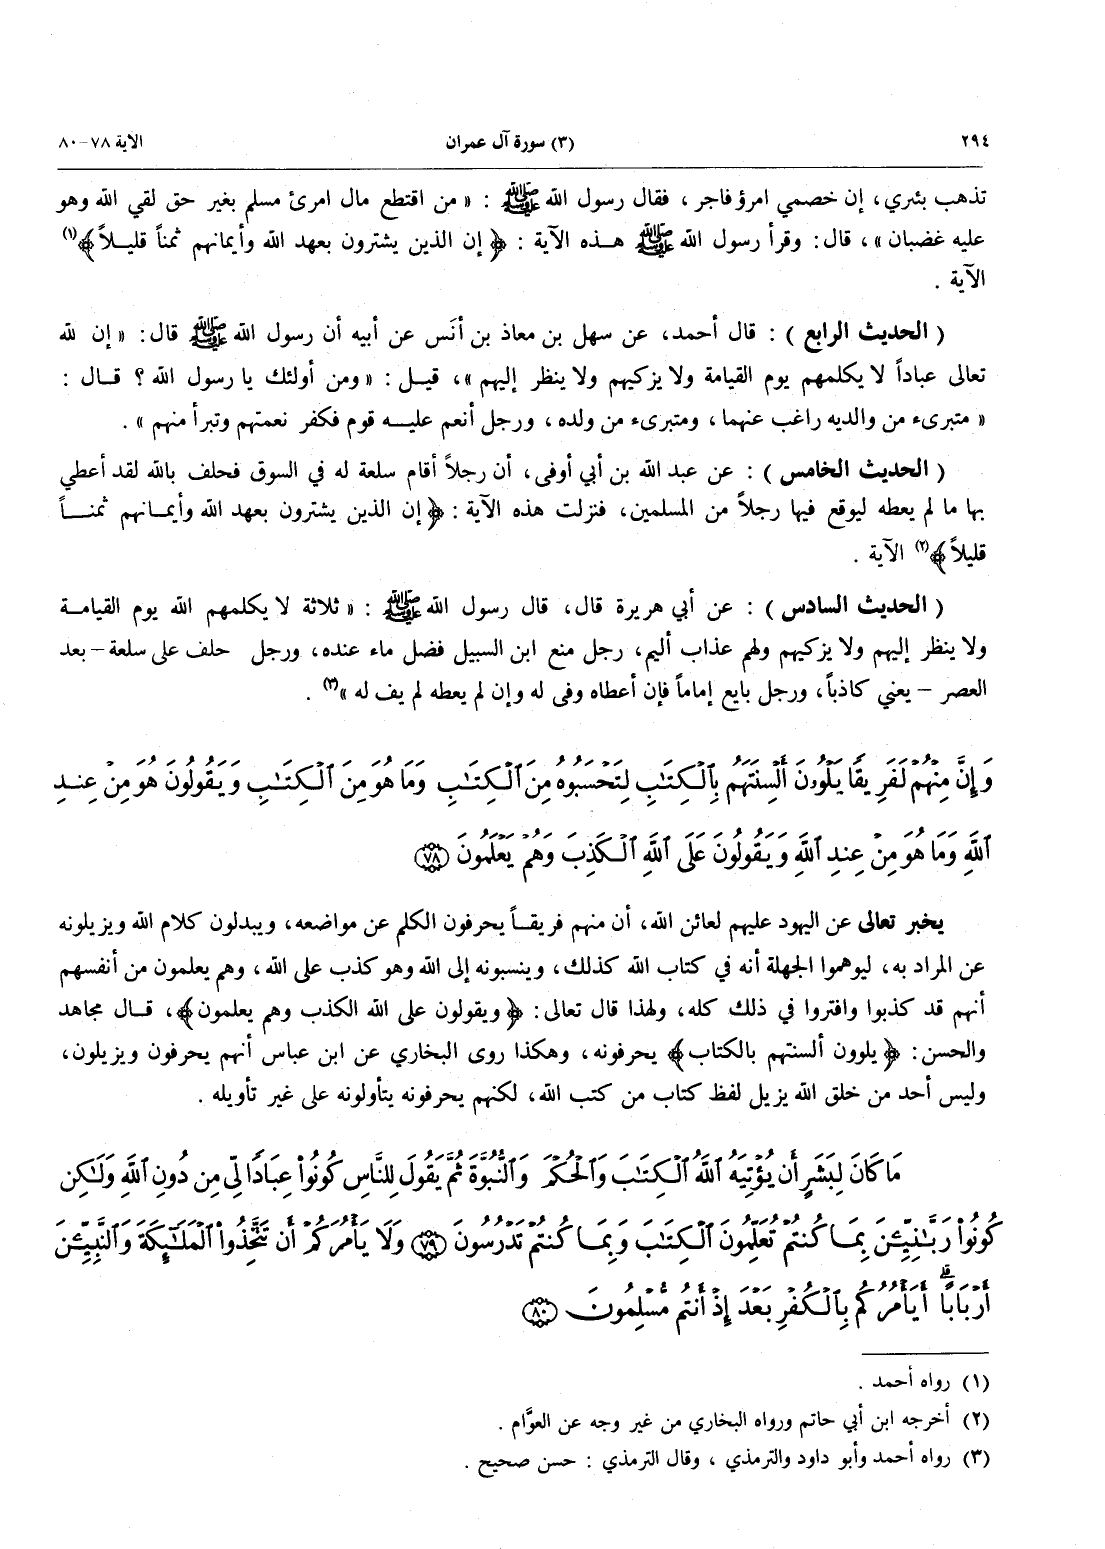 ٢٩٤ (٣) سورة آل عمران الآية ٧٨-٨٠
تذهب بئري، إن خصمي امرؤ فاجر، فقال رسول الله ﷺ : « من اقتطع مال امرئ مسلم بغير حق لقي الله وهو
عليه غضبان »، قال: وقرأ رسول الله ﷺ هـذه الآية : ﴿ إن الذين يشترون بعهد الله وأيمانهم ثمناً قليـلاً﴾(١)
الآية .
( الحديث الرابع ) : قال أحمد، عن سهل بن معاذ بن أنَس عن أبيه أن رسول الله ﷺ قال: « إن لله
تعالى عباداً لا يكلمهم يوم القيامة ولا يزكيهم ولا ينظر إليهم »، قيـل : «ومن أولئك يا رسول الله ؟ قـال :
« متبرىء من والديه راغب عنهما، ومتبرىء من ولده، ورجل أنعم عليـه قوم فكفر نعمتهم وتبرأ منهم » .
( الحديث الخامس ) : عن عبد الله بن أبي أوفى، أن رجلاً أقام سلعة له في السوق فحلف بالله لقد أعطي
بها ما لم يعطه ليوقع فيها رجلاً من المسلمين، فنزلت هذه الآية : ﴿إن الذين يشترون بعهد الله وأيمـانهم ثمنـاً
قليلاً﴾(٢) الآية .
( الحديث السادس ) : عن أبي هريرة قال، قال رسول الله ﷺ : « ثلاثة لا يكلمهم الله يوم القيامـة
ولا ينظر إليهم ولا يزكيهم ولهم عذاب أليم، رجل منع ابن السبيل فضل ماء عنده، ورجل حلف على سلعة – بعد
العصر – يعني كاذباً، ورجل بايع إماماً فإن أعطاه وفى له وإن لم يعطه لم يف له »(٣) .
وَإِنَّ مِنْهُمْ لَفَرِيقًا يَلْوُونَ أَلْسِنَتَهُم بِٱلْكِتَٰبِ لِتَحْسَبُوهُ مِنَ ٱلْكِتَٰبِ وَمَا هُوَ مِنَ ٱلْكِتَٰبِ وَيَقُولُونَ هُوَ مِنْ عِندِ
ٱللَّهِ وَمَا هُوَ مِنْ عِندِ ٱللَّهِ وَيَقُولُونَ عَلَى ٱللَّهِ ٱلْكَذِبَ وَهُمْ يَعْلَمُونَ ﴿٧٨﴾
يخبر تعالى عن اليهود عليهم لعائن الله، أن منهم فريقـاً يحرفون الكلم عن مواضعه، ويبدلون كلام الله ويزيلونه
عن المراد به، ليوهموا الجهلة أنه في كتاب الله كذلك، وينسبونه إلى الله وهو كذب على الله، وهم يعلمون من أنفسهم
أنهم قد كذبوا وافتروا في ذلك كله، ولهذا قال تعالى: ﴿ويقولون على الله الكذب وهم يعلمون﴾، قـال مجاهد
والحسن: ﴿يلوون ألسنتهم بالكتاب﴾ يحرفونه، وهكذا روى البخاري عن ابن عباس أنهم يحرفون ويزيلون،
وليس أحد من خلق الله يزيل لفظ كتاب من كتب الله، لكنهم يحرفونه يتأولونه على غير تأويله .
مَا كَانَ لِبَشَرٍ أَن يُؤْتِيَهُ ٱللَّهُ ٱلْكِتَٰبَ وَٱلْحُكْمَ وَٱلنُّبُوَّةَ ثُمَّ يَقُولَ لِلنَّاسِ كُونُوا۟ عِبَادًا لِّى مِن دُونِ ٱللَّهِ وَلَٰكِن
كُونُوا۟ رَبَّٰنِيِّـۧنَ بِمَا كُنتُمْ تُعَلِّمُونَ ٱلْكِتَٰبَ وَبِمَا كُنتُمْ تَدْرُسُونَ ﴿٧٩﴾ وَلَا يَأْمُرَكُمْ أَن تَتَّخِذُوا۟ ٱلْمَلَٰٓئِكَةَ وَٱلنَّبِيِّـۧنَ
أَرْبَابًا ۗ أَيَأْمُرُكُم بِٱلْكُفْرِ بَعْدَ إِذْ أَنتُم مُّسْلِمُونَ ﴿٨٠﴾
(١) رواه أحمد .
(٢) أخرجه ابن أبي حاتم ورواه البخاري من غير وجه عن العوَّام .
(٣) رواه أحمد وأبو داود والترمذي ، وقال الترمذي : حسن صحيح .